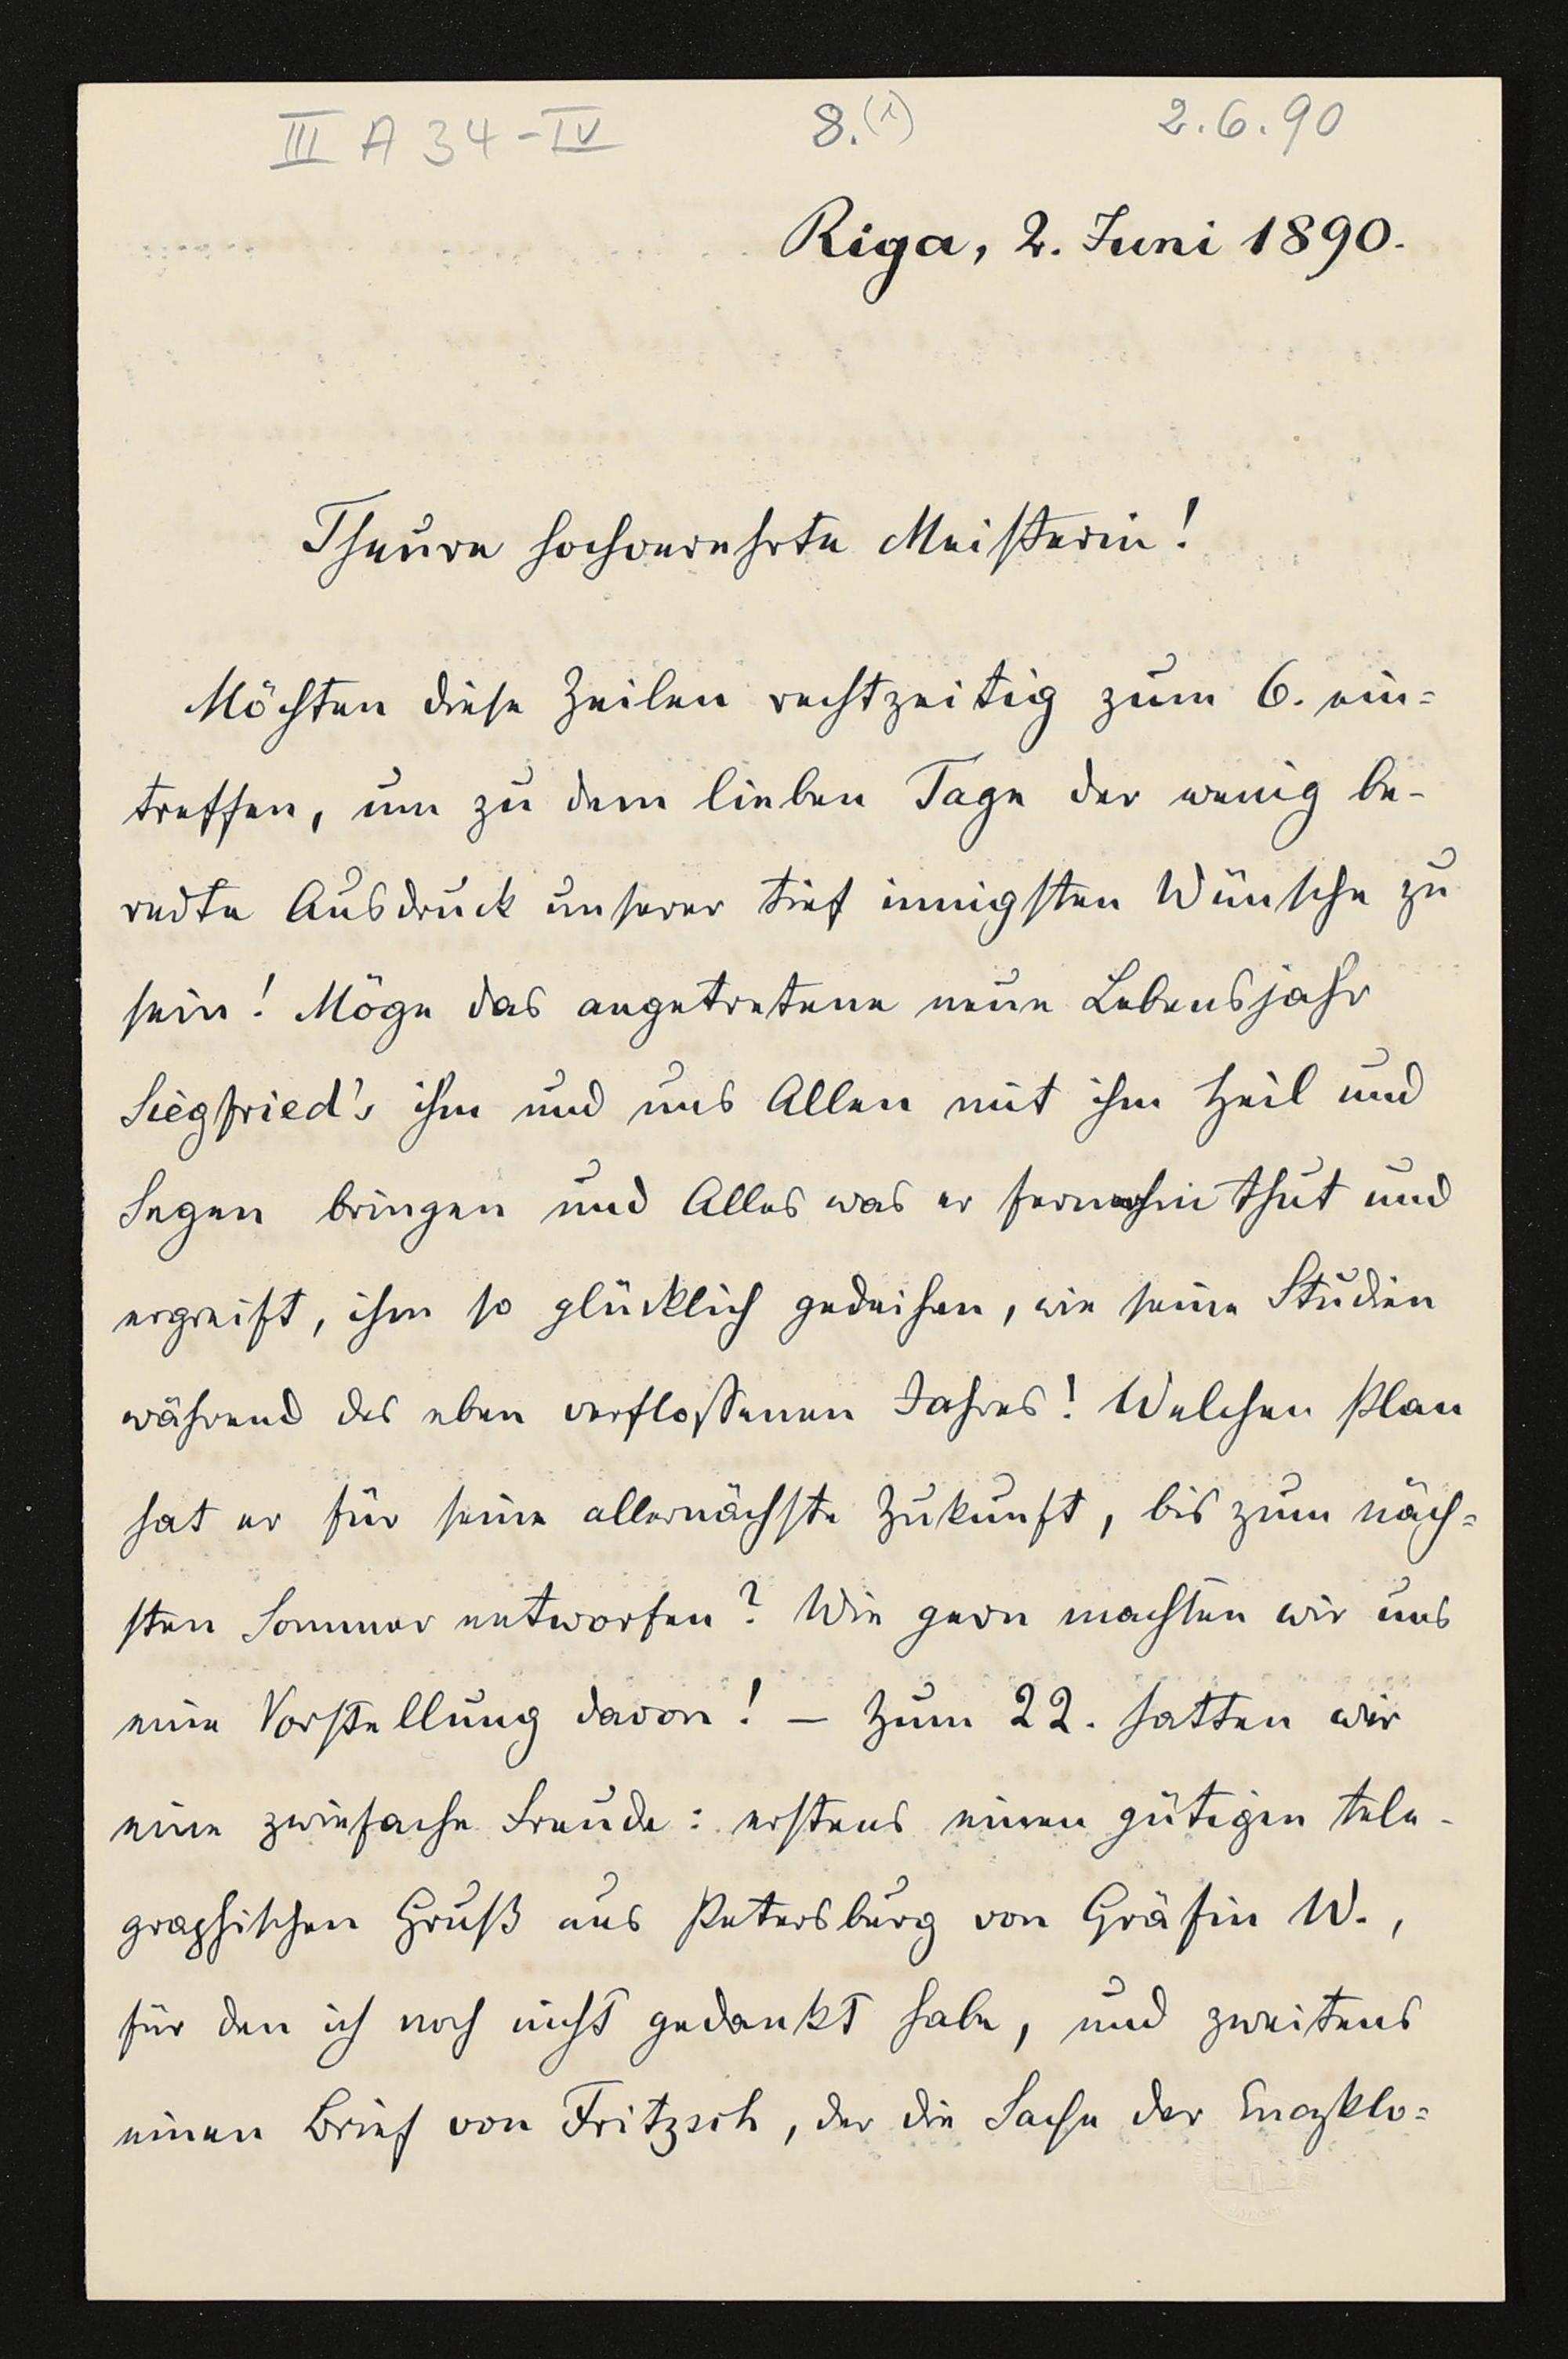 III A 34-IV 8.(1) 2.6.90
Riga, 2. Juni 1890.
Theure hochverehrte Meisterin!
Möchten diese Zeilen rechtzeitig zum 6. ein=
treffen, um zu dem lieben Tage der wenig be-
redte Ausdruck unserer tief innigsten Wünsche zu
sein! Möge das angetretene neue Lebensjahr
Siegfried's ihm und uns Allen mit ihm Heil und
Segen bringen und Alles was er fernerhin thut und
ergreift, ihm so glücklich gedeihen, wie seine Studien
während des eben verflossenen Jahres! Welchen Plan
hat er für seine allernächste Zukunft, bis zum näch=
sten Sommer entworfen? Wie gern machten wir uns
eine Vorstellung davon! – Zum 22. hatten wir
eine zwiefache Freude: erstens einen gütigen tele-
graphischen Gruß aus Petersburg von Gräfin W.,
für den ich noch nicht gedankt habe, und zweitens
einen Brief von Fritzsch, der die Sache der Encyklo=